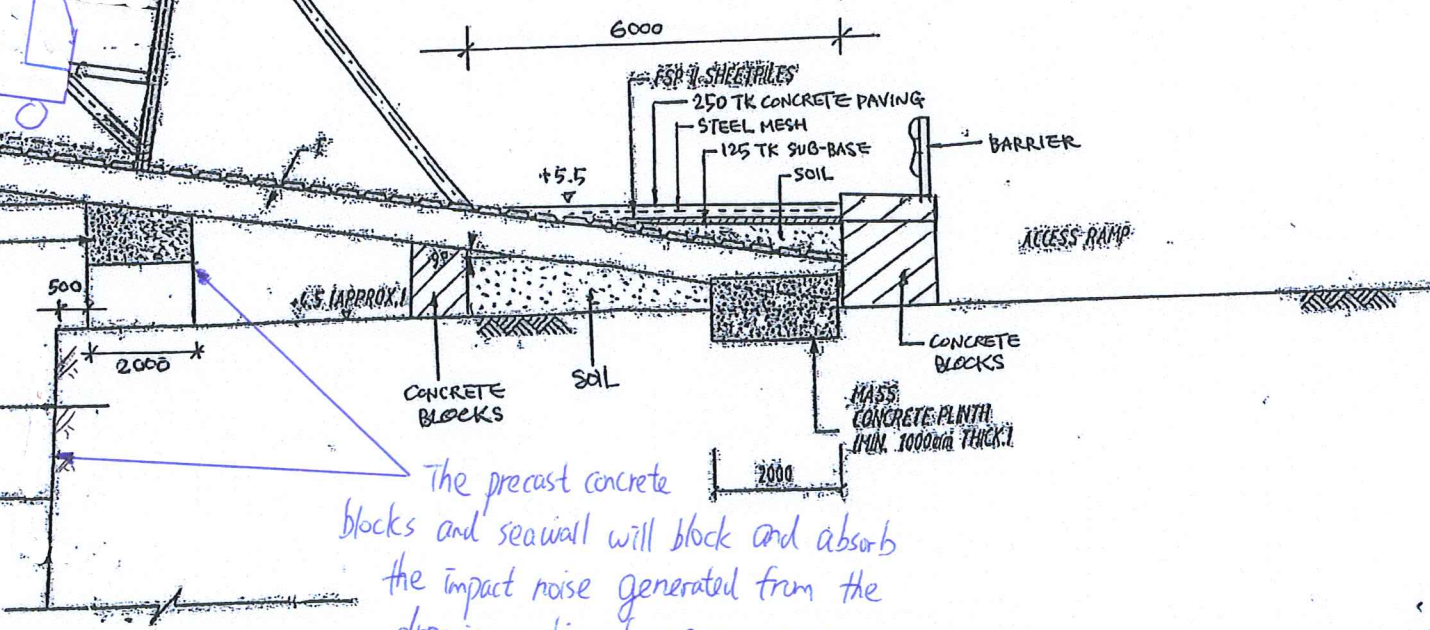 6000
FSP II SHEETPILES
250 TK CONCRETE PAVING
STEEL MESH
125 TK SUB-BASE
SOIL
+5.5
BARRIER
ACCESS RAMP
500
(APPROX.)
2000
CONCRETE
BLOCKS
SOIL
CONCRETE
BLOCKS
MASS
CONCRETE PLINTH
(MIN. 1000mm THICK.)
2000
The precast concrete
blocks and seawall will block and absorb
the impact noise generated from the